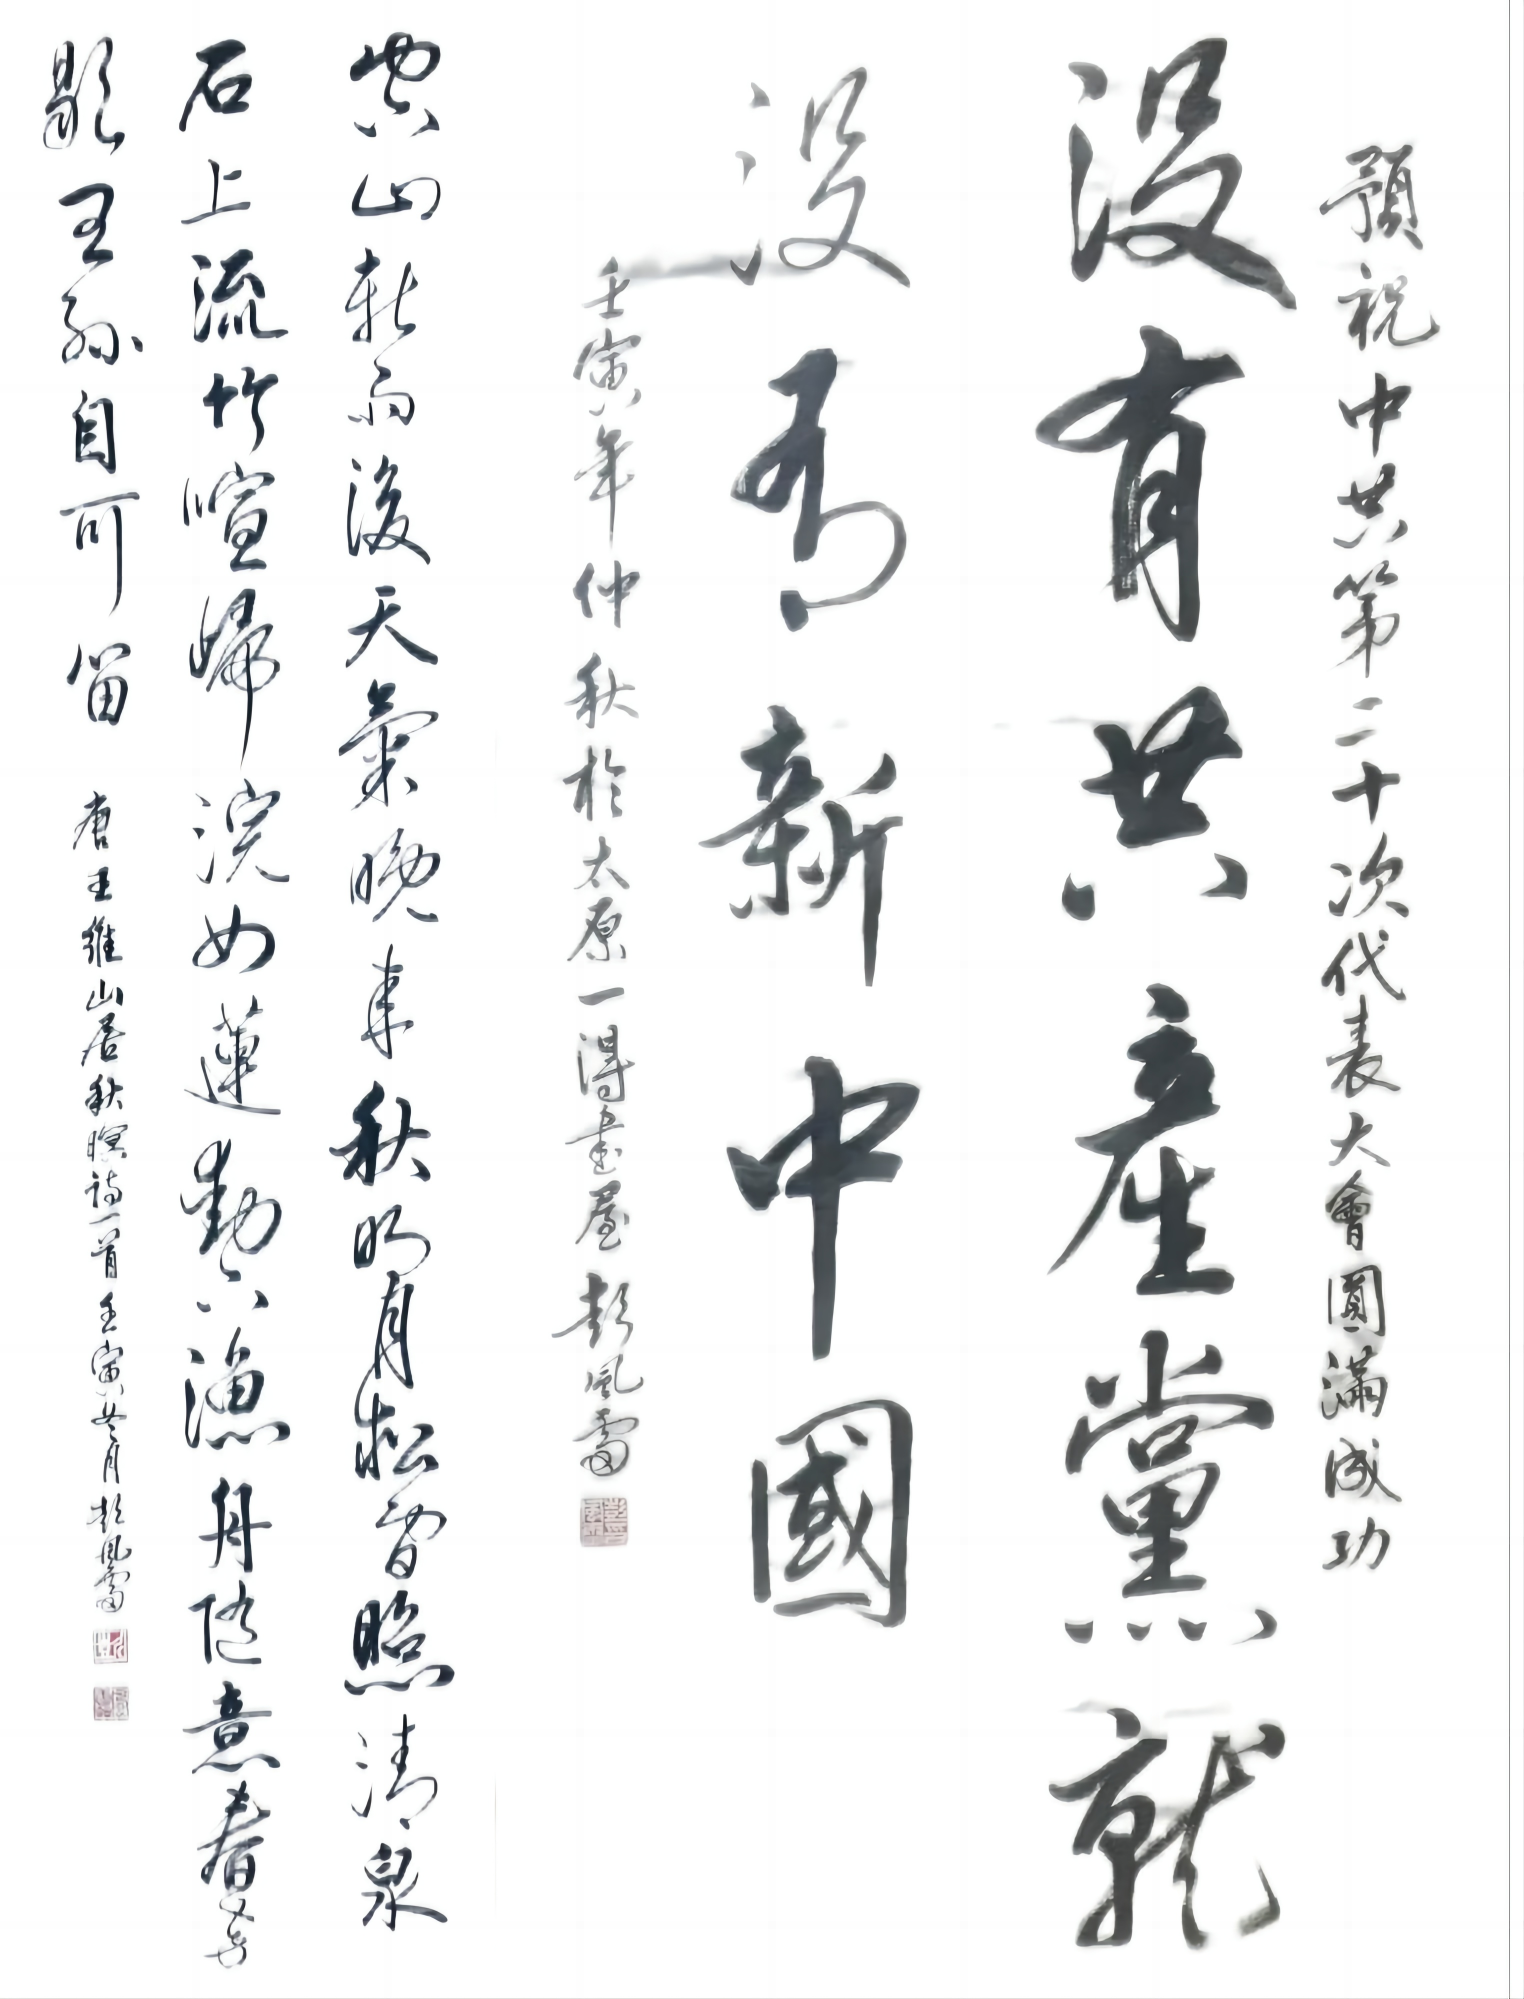 預祝中共第二十次代表大會圓滿成功
没有共產黨就
没有新中國
壬寅年仲秋於太原一得書屋彭風雷
空山新雨後天氣晚来秋明月松間照清泉
石上流竹喧歸浣女蓮動下漁舟隨意春芳
歇王孫自可留 唐王維山居秋暝詩一首壬寅月彭風雷